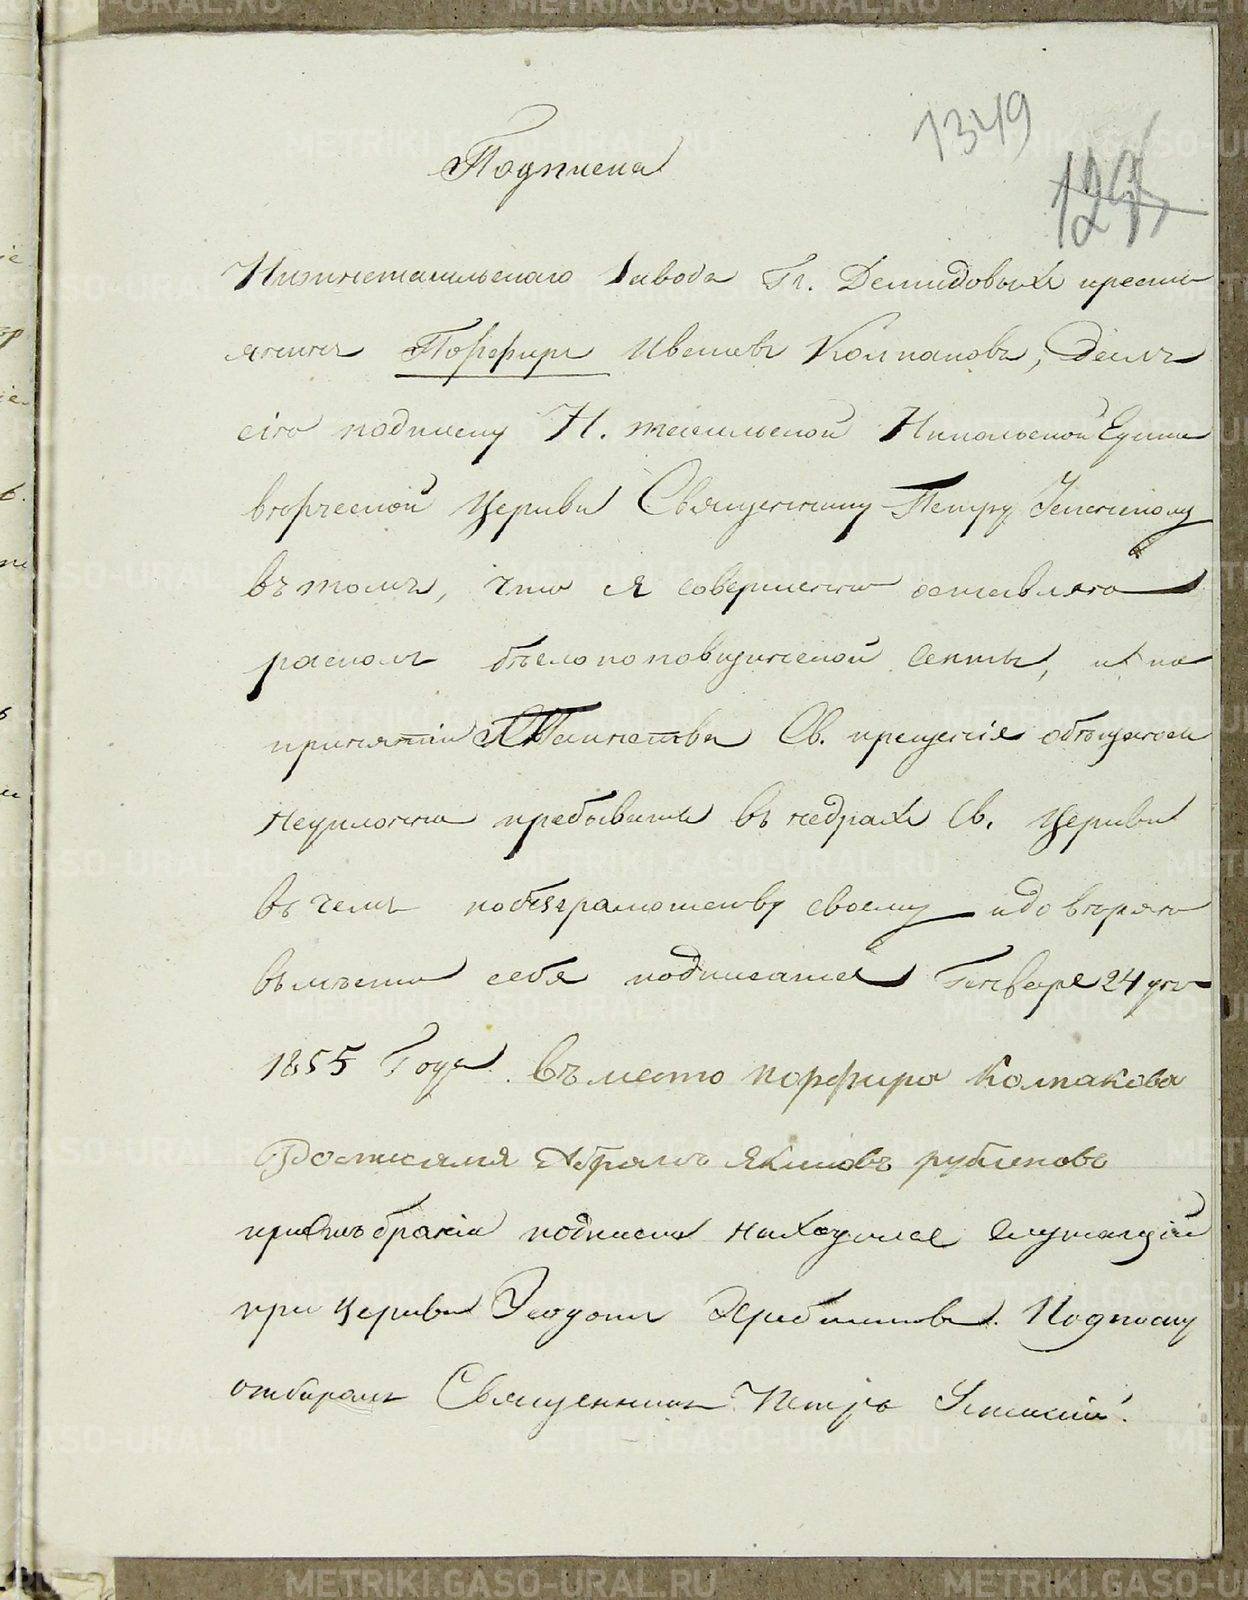 1349
127
Подписка
Нижнетагильскаго Завода Гг. Демидовыхъ кресть
янинъ Порфиръ Ивановъ Колпаковъ, далъ
сію подписку Н. тагильской Никольской Едино
верческой Церкви Священнику Петру
въ томъ, что я совершенно оставляю
расколъ беспоповщинской секты, и по
принятіи Таинства Св. крещенія обещаюсь
неуклонно пребывать въ недрахъ Св. Церкви
въ чемъ по безграмотству своему и доверяю
вместо себя подписатся Генваря 24 дня
1855 Года. въместо порфира Колпакова
Росписался Абрамъ Якимовъ рубленовъ
при отъбраніи подписки находился служащій
при Церкви Подписку
отбиралъ Священникъ Петръ